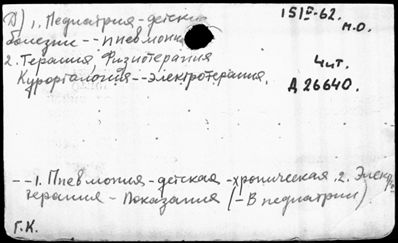 Д) 1. Педиатрия - детские
болезни -- пневмония
2. Терапия Физиотерапия
Курортология -- электротерапия.
15IV-62.
М.О.
Чит.
Д 26640.
-- 1. Пневмония - детская - хроническая. 2. Электро
терапия - Показания (- В педиатрии).
Г.К.